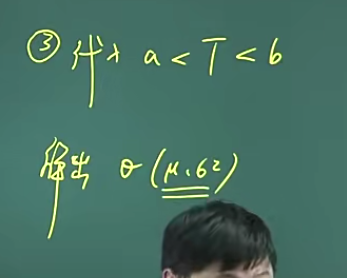 ③ 代入 a < T < b
解出 θ (μ, σ²)